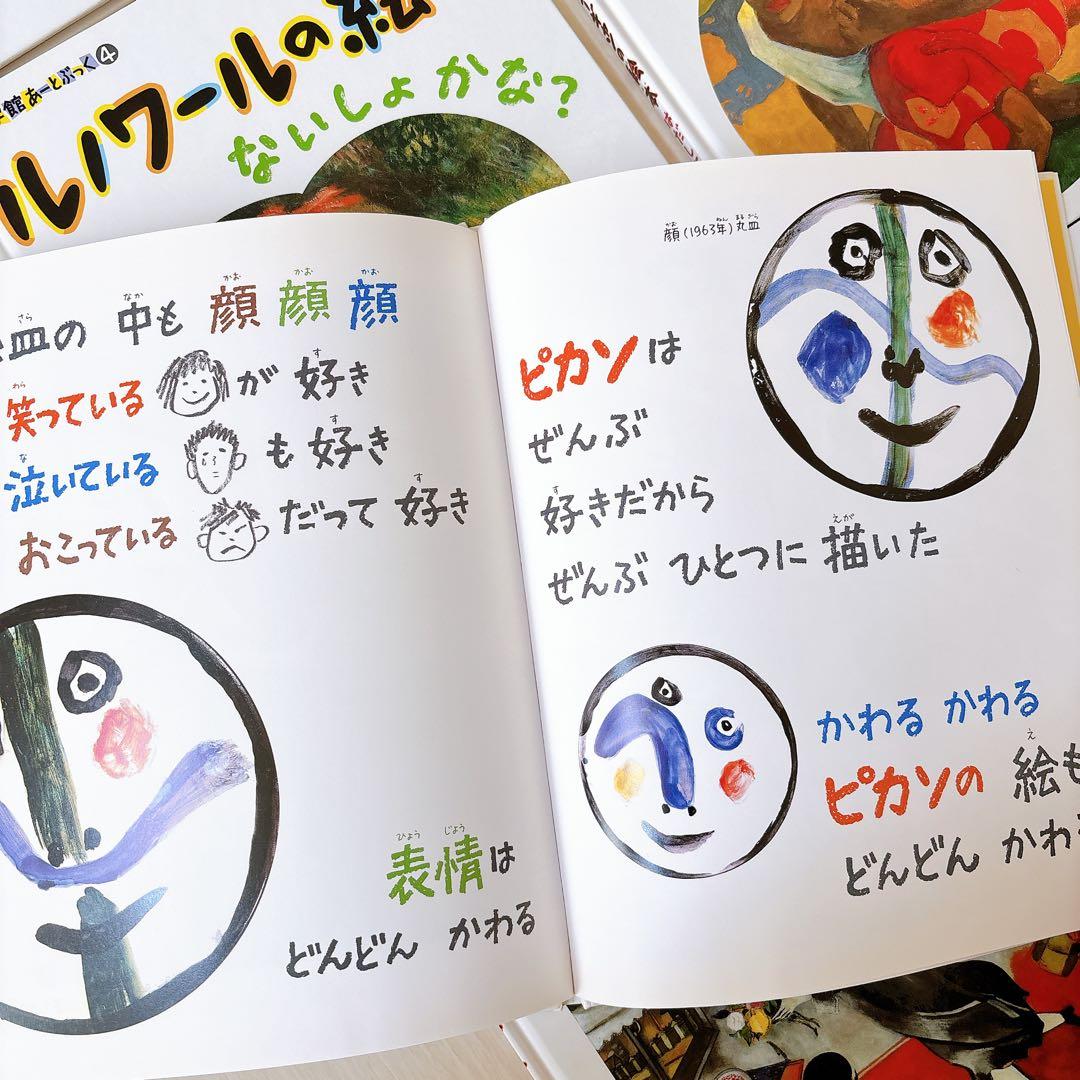 館あーとぶっく④
ルノワールの絵
ないしょかな?
皿の 中も 顔 顔 顔
笑っている が 好き
泣いている も 好き
おこっている だって 好き
表情は
どんどん かわる
顔(1963年)丸皿
ピカソは
ぜんぶ
好きだから
ぜんぶ ひとつに 描いた
かわる かわる
ピカソの 絵も
どんどん かわ